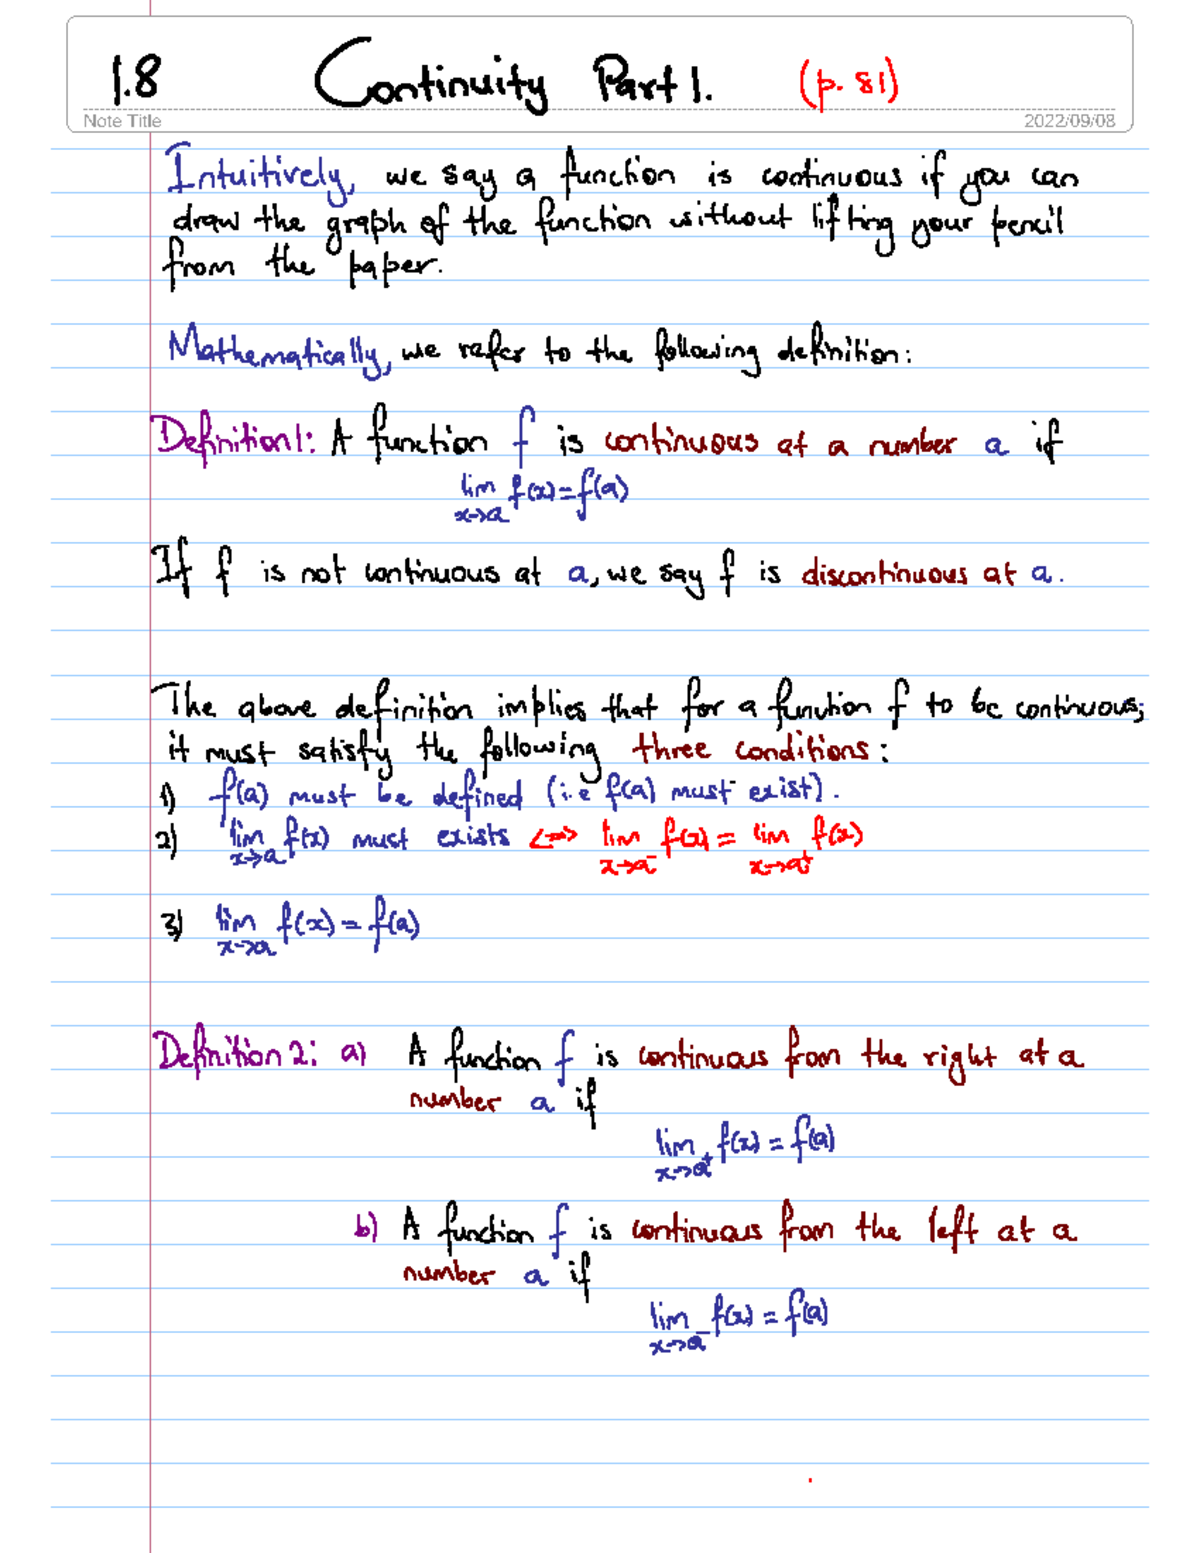 1.8 Continuity Part 1. (p. 81)
Note Title 2022/09/08
Intuitively, we say a function is continuous if you can
draw the graph of the function without lifting your pencil
from the paper.
Mathematically, we refer to the following definition:
Definition 1: A function f is continuous at a number a if
lim x→a f(x) = f(a)
If f is not continuous at a, we say f is discontinuous at a.
The above definition implies that for a function f to be continuous,
it must satisfy the following three conditions:
1) f(a) must be defined (i.e f(a) must exist).
2) lim x→a f(x) must exists <=> lim x→a⁻ f(x) = lim x→a⁺ f(x)
3) lim x→a f(x) = f(a)
Definition 2: a) A function f is continuous from the right at a
number a if
lim x→a⁺ f(x) = f(a)
b) A function f is continuous from the left at a
number a if
lim x→a⁻ f(x) = f(a)